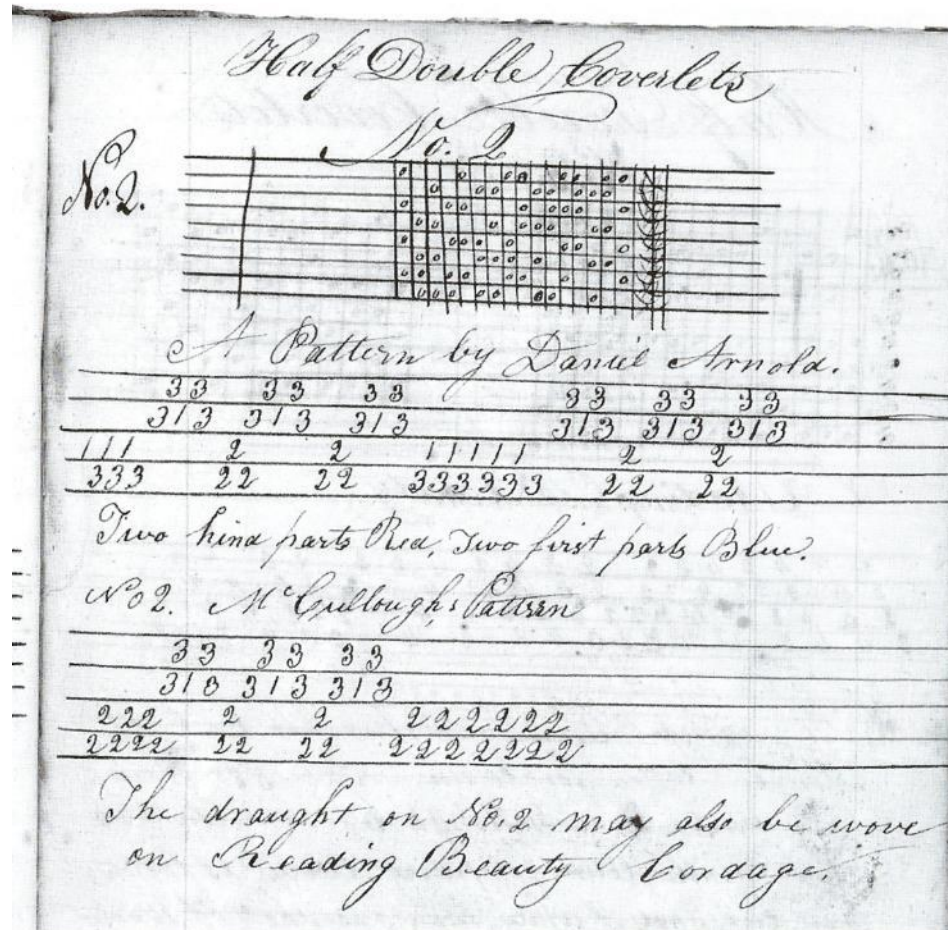 Half Double Coverlets
No. 2
No. 2.
A Pattern by Daniel Arnold.
33 33 33 33 33 33
313 313 313 313 313 313
111 2 2 11111 2 2
333 22 22 333333 22 22
Two hind parts Red, Two first parts Blue.
No 2. McCullough's Pattern
33 33 33
313 313 313
222 2 2 222222
2222 22 22 2222222
The draught on No. 2 may also be wove
on Reading Beauty Cordage.